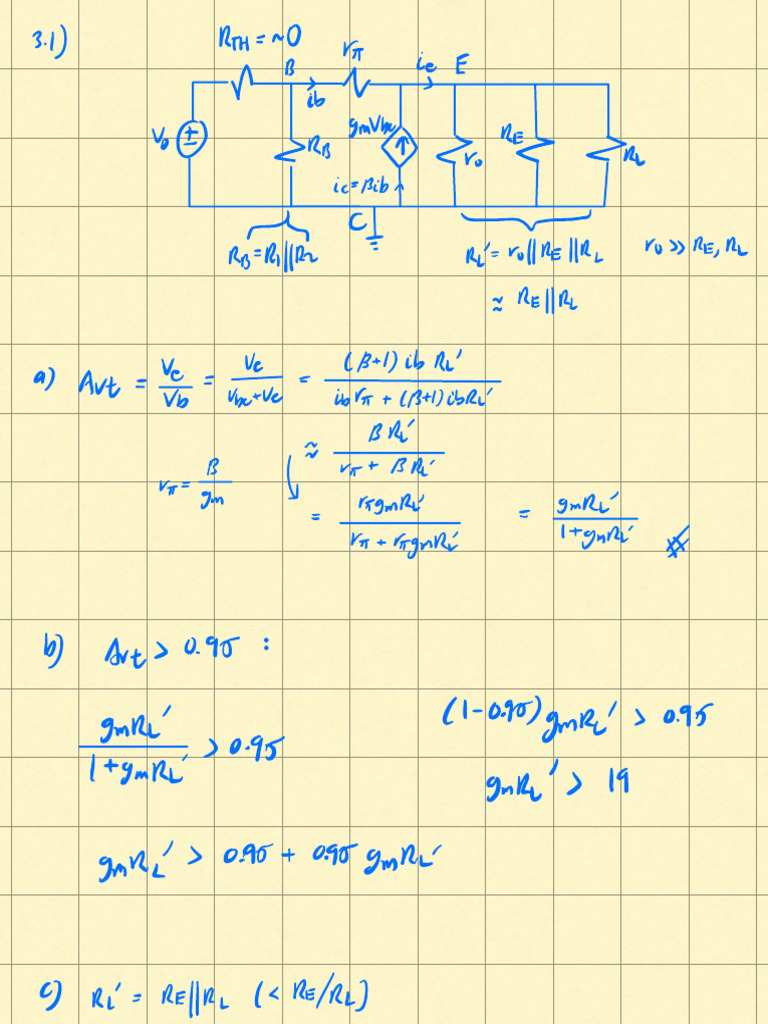 3.1)
R_TH = ~0
r_π
B
i_b
i_e E
V_o
R_B
g_m V_be
i_c = β i_b
r_o
R_E
R_L
C
R_B = R_1 || R_2
R_L' = r_o || R_E || R_L
r_o >> R_E, R_L
≈ R_E || R_L
a) A_vt = V_e / V_b = V_e / (V_be + V_e) = (β+1) i_b R_L' / (i_b r_π + (β+1) i_b R_L')
≈ β R_L' / (r_π + β R_L')
r_π = β / g_m
= r_π g_m R_L' / (r_π + r_π g_m R_L') = g_m R_L' / (1 + g_m R_L')
b) A_vt > 0.95 :
g_m R_L' / (1 + g_m R_L') > 0.95
g_m R_L' > 0.95 + 0.95 g_m R_L'
(1 - 0.95) g_m R_L' > 0.95
g_m R_L' > 19
c) R_L' = R_E || R_L (< R_E / R_L)